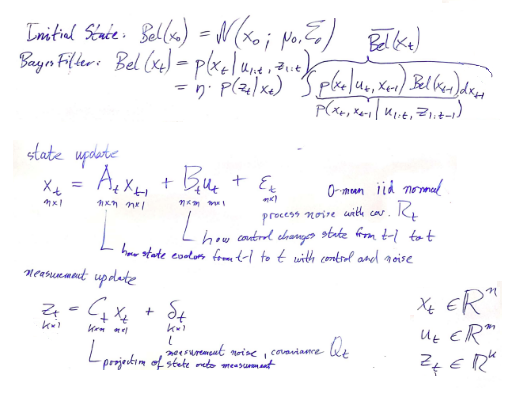 Initial State: Bel(x₀) = N(x₀; μ₀, Σ₀)
B̅e̅l̅(xₜ)
Bayes Filter: Bel(xₜ) = p(xₜ | u₁:ₜ, z₁:ₜ)
= η · p(zₜ|xₜ) ∫ p(xₜ|uₜ, xₜ₋₁) Bel(xₜ₋₁) dxₜ₋₁
p(xₜ, xₜ₋₁ | u₁:ₜ, z₁:ₜ₋₁)
state update
xₜ = Aₜ xₜ₋₁ + Bₜ uₜ + εₜ 0-mean iid normal
n×1 n×n n×1 n×m m×1 n×1 process noise with cov. Rₜ
how control changes state from t-1 to t
how state evolves from t-1 to t with control and noise
measurement update
zₜ = Cₜ xₜ + δₜ
k×1 k×n n×1 k×1
measurement noise, covariance Qₜ
projection of state onto measurement
xₜ ∈ ℝⁿ
uₜ ∈ ℝᵐ
zₜ ∈ ℝᵏ